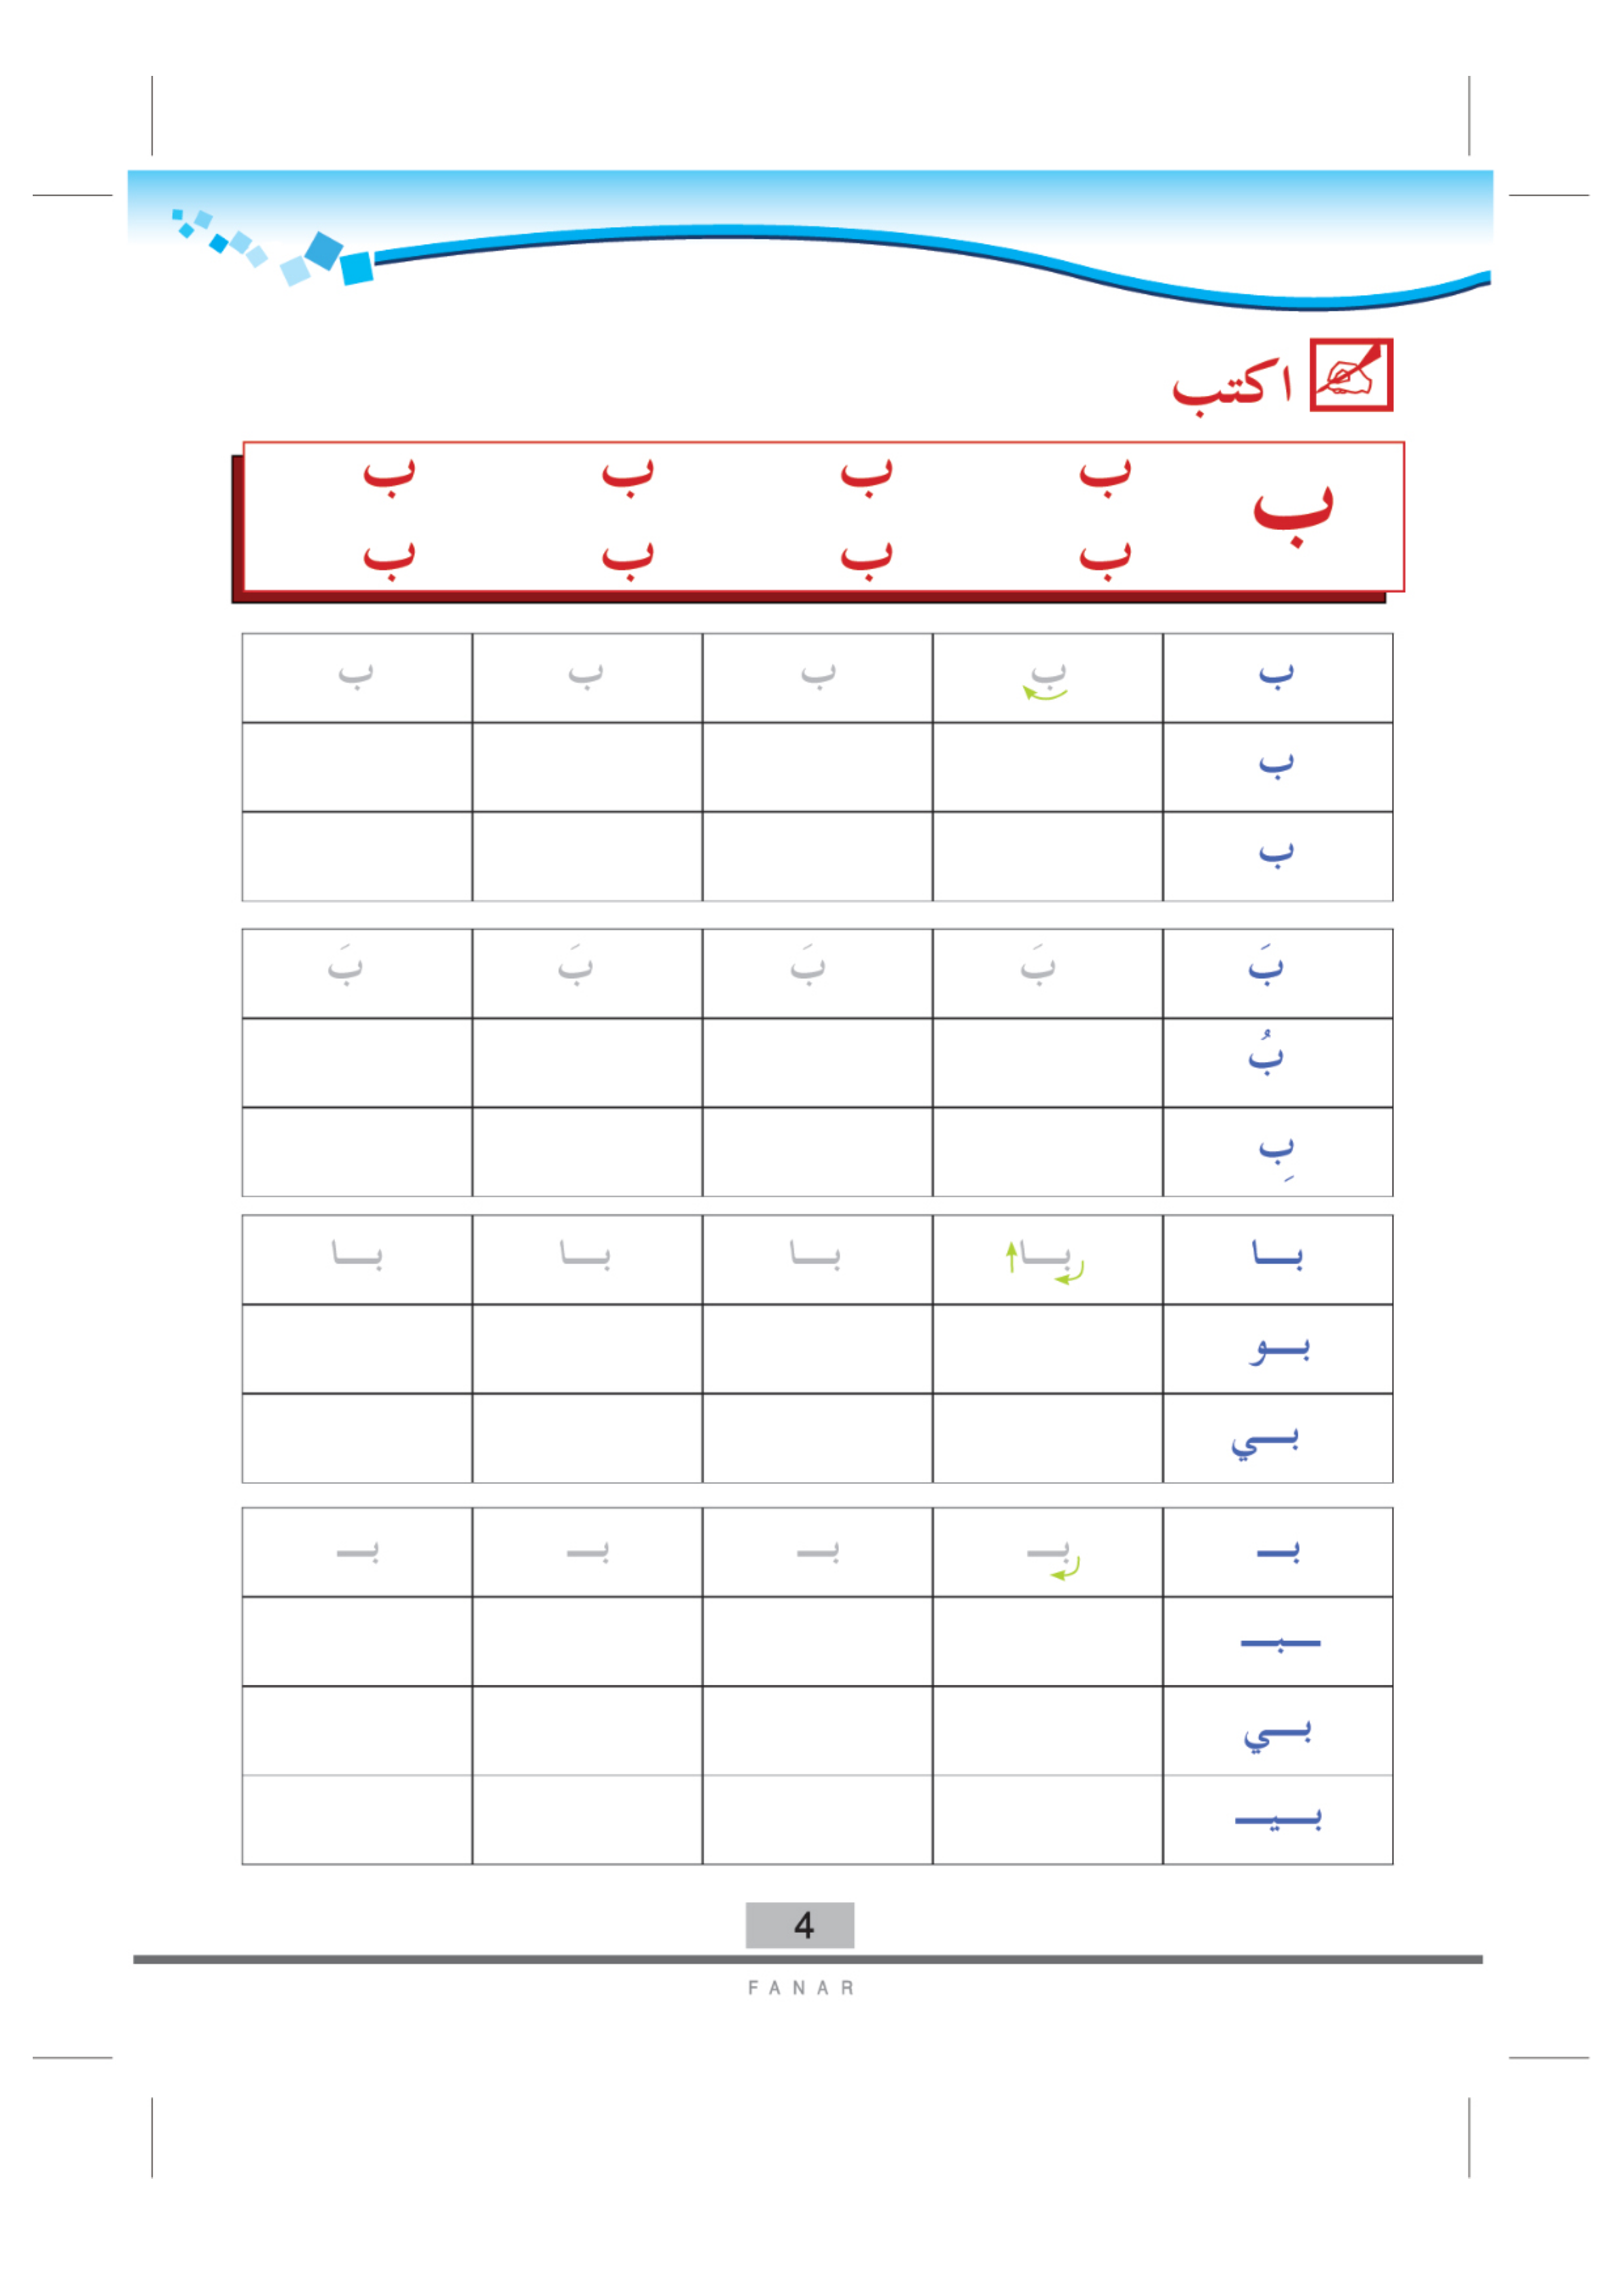 اكتب
ب ب ب ب ب
ب ب ب ب
ب ب ب ب ب
ب
ب
بَ بَ بَ بَ بَ
بُ
بِ
بــا بــا بــا بــا بــا
بــو
بــي
بــ بــ بــ بــ بــ
ــبــ
بــي
بــيــ
4
FANAR